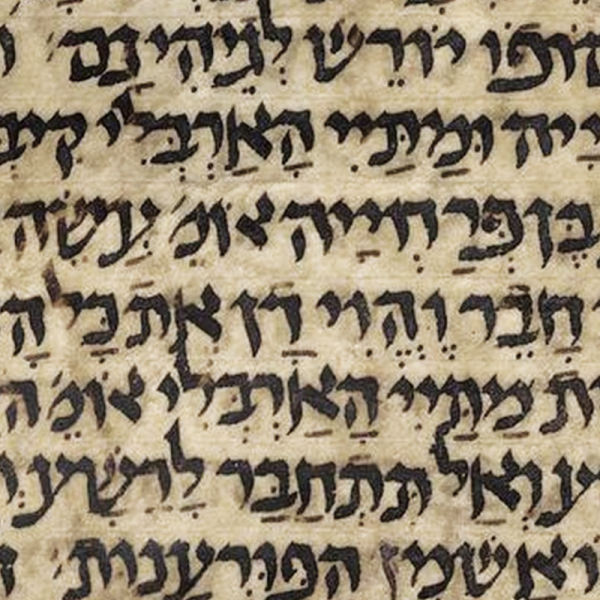 סופו יורש לגיהינם ו
ייה ומתיי הארבלי קיב
בן פרחייה אומ' עשה
חבר והוי דן את כל ה
ת מתיי הארבלי אומ' ה
ע ואל תתחבר לרשע ו
יאש מן הפורענות